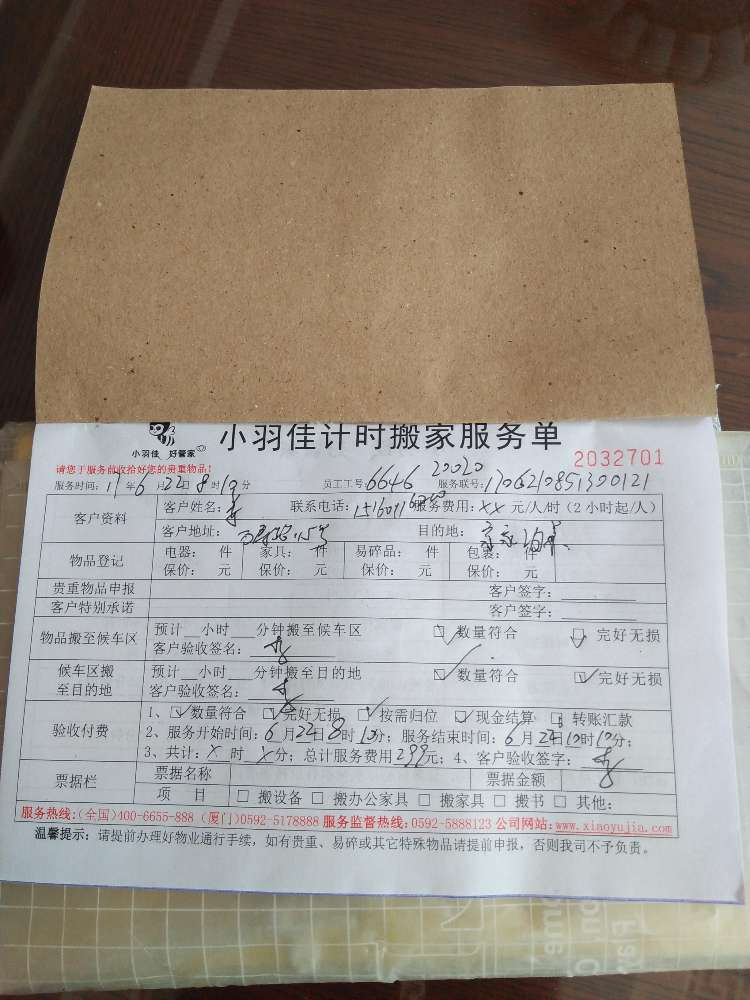 小羽佳 好管家
小羽佳计时搬家服务单
2032701
请您于服务前收拾好您的贵重物品!
服务时间: 17年6月22日8时10分 员工工号: 6646 20020 服务联号: 1706210851300121
客户资料 客户姓名: 联系电话: 服务费用: XX 元/人/时 (2小时起/人)
客户地址: 目的地:
物品登记 电器: 件 家具: 件 易碎品: 件 包装: 件
保价: 元 保价: 元 保价: 元 保价: 元
贵重物品申报 客户签字:
客户特别承诺 客户签字:
物品搬至候车区 预计__小时___分钟搬至候车区 ☑ 数量符合 ☑ 完好无损
客户验收签名:
候车区搬至目的地 预计__小时___分钟搬至目的地 ☑ 数量符合 ☑ 完好无损
客户验收签名:
验收付费 1、☑ 数量符合 ☑ 完好无损 ☑ 按需归位 ☑ 现金结算 □ 转账汇款
2、服务开始时间: 6月22日8时10分; 服务结束时间: 6月22日10时10分;
3、共计: X 时 X 分; 总计服务费用299元; 4、客户验收签字:
票据栏 票据名称 票据金额
项 目 □ 搬设备 □ 搬办公家具 □ 搬家具 □ 搬书 □ 其他:
服务热线:(全国)400-6655-888 (厦门)0592-5178888 服务监督热线: 0592-5888123 公司网站: www.xiaoyujia.com
温馨提示: 请提前办理好物业通行手续, 如有贵重、易碎或其它特殊物品请提前申报, 否则我司不予负责。